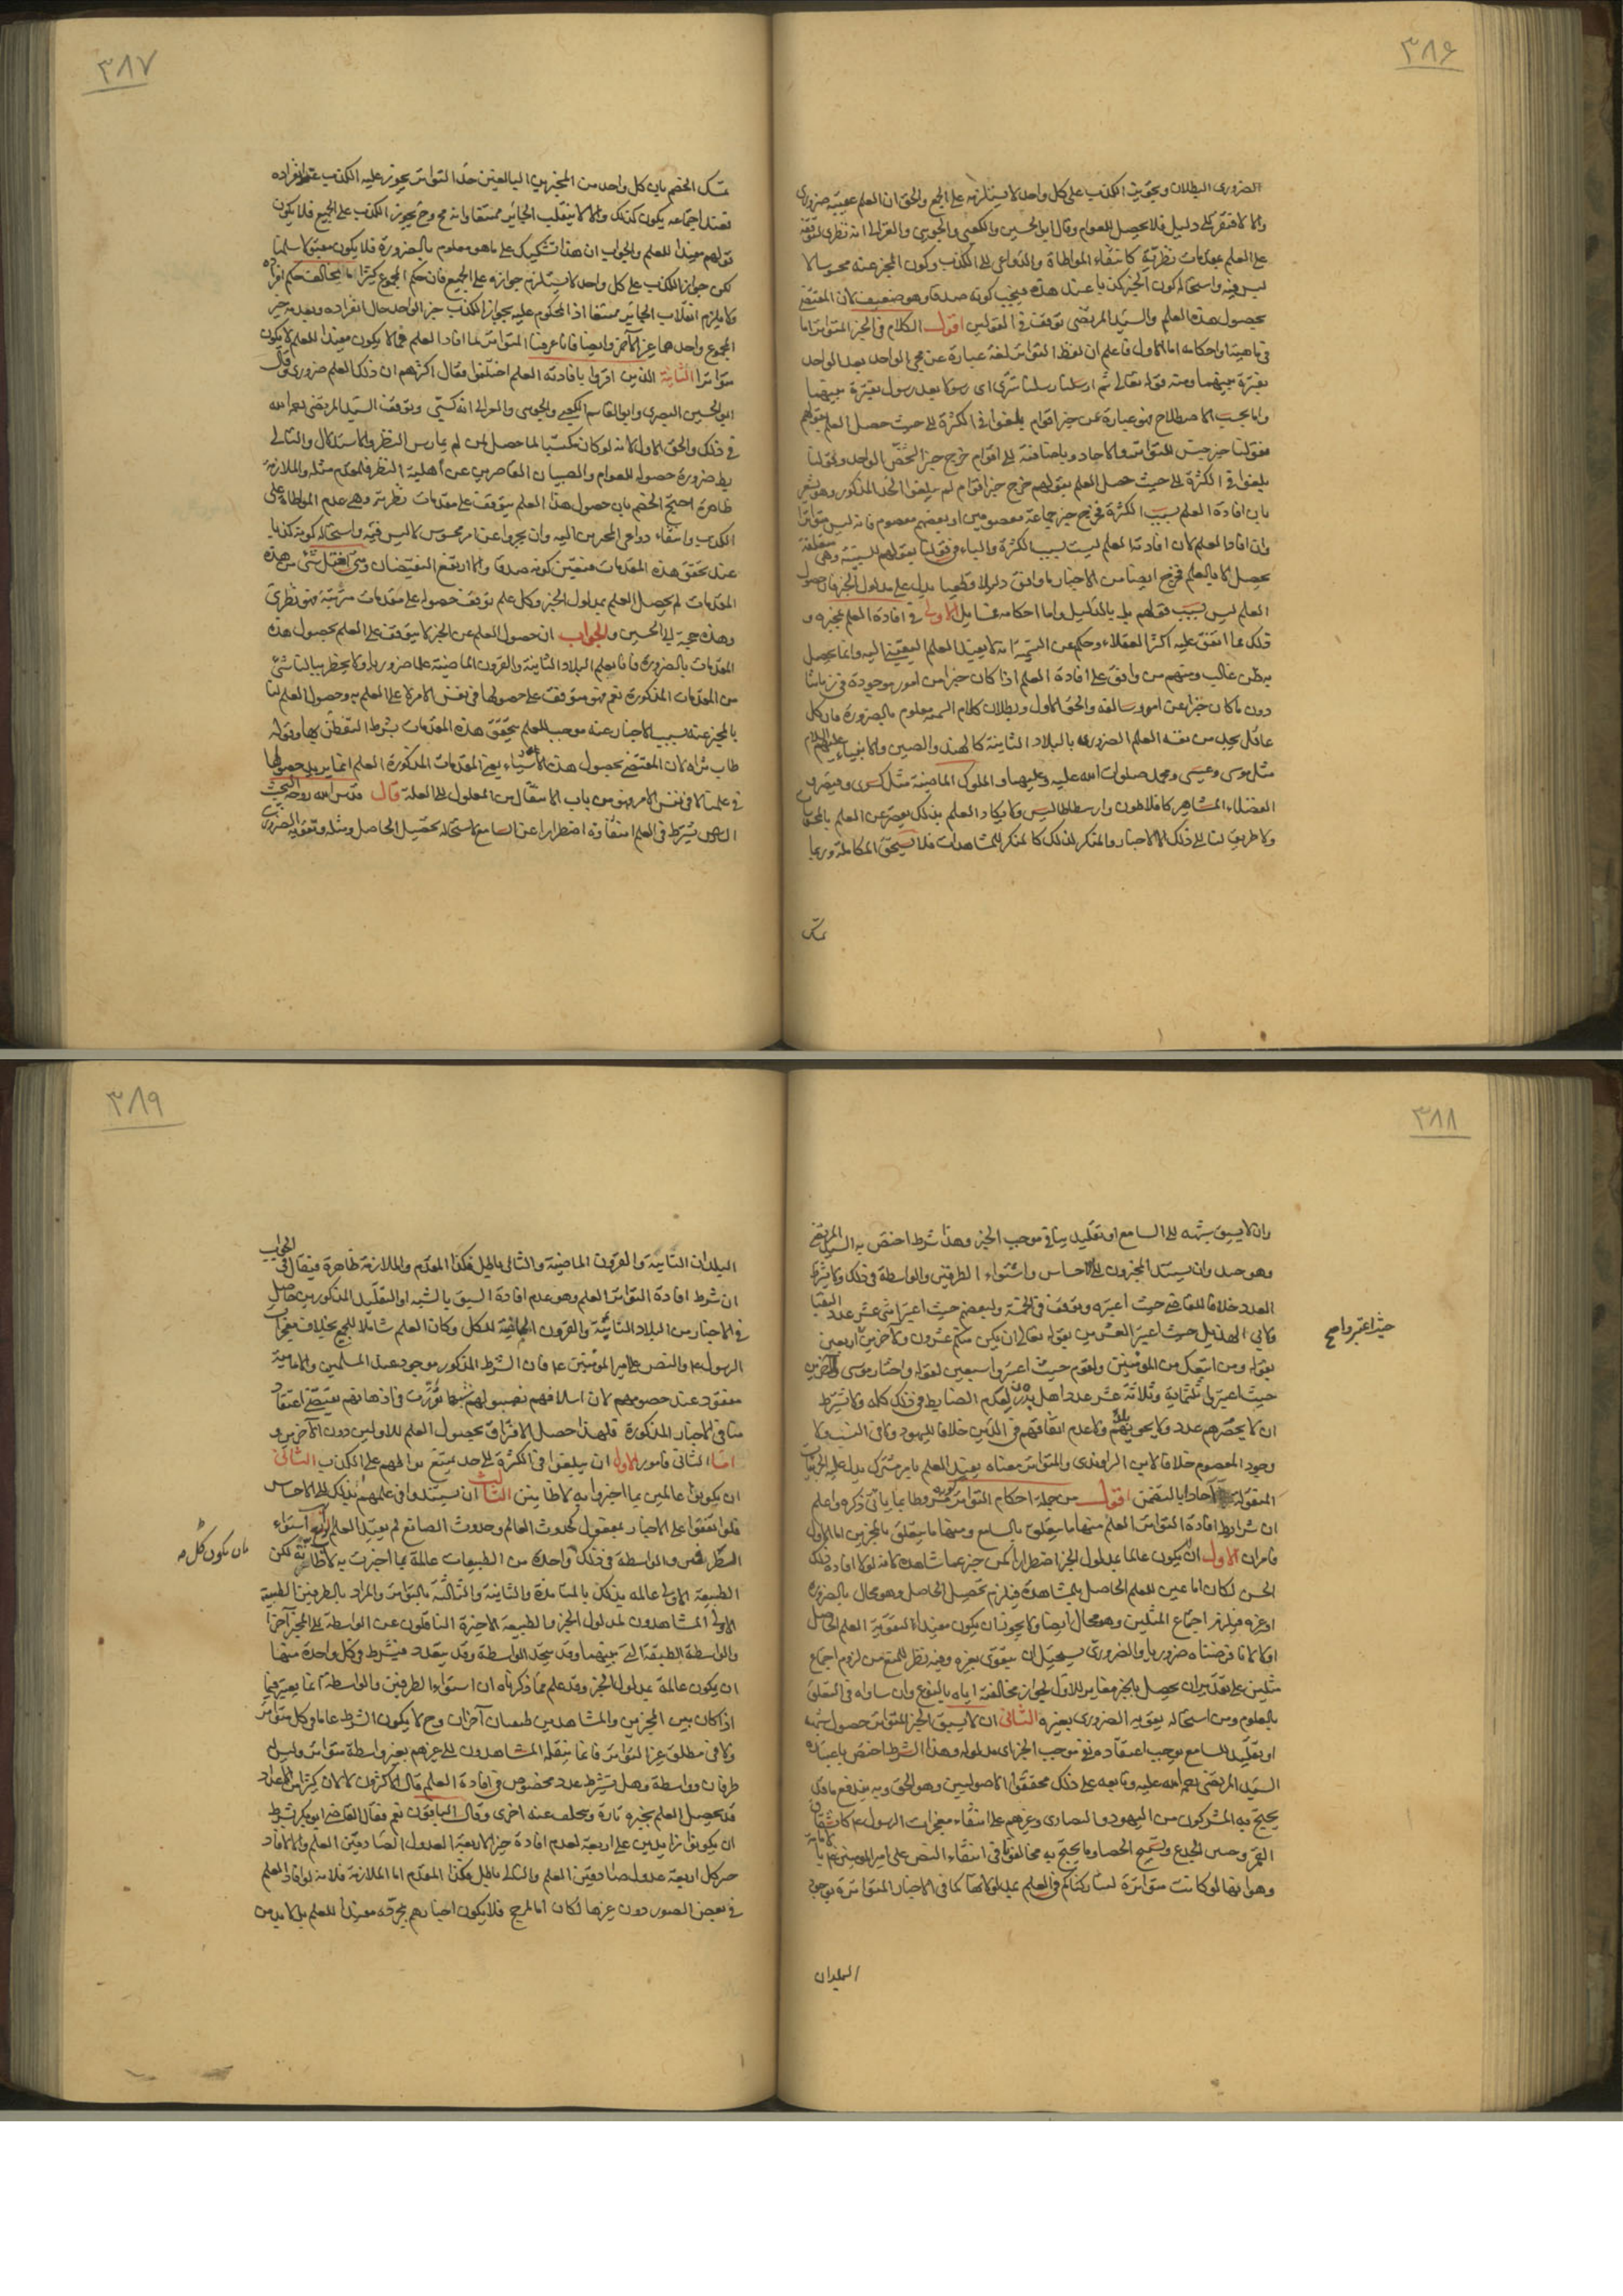 ٣٨۶
الضروري البطلان وتجويز الكذب على كل واحد لا يستلزمه على الجميع والحق ان العلم عقيبه ضروري
والا لافتقر الى دليل فلا يحصل للعوام وقال ابو الحسين والكعبي والجويني والغزالي انه نظري لتوقفه
على العلم بمقدمات نظرية كانتفاء المواطاة والدواعي الى الكذب وكون المخبر عنه محسوسا لا
لبس فيه واستحالة كون الخبر كذبا عند هذه فيجب كونه صدقا وهو ضعيف لان المقتضي
بحصول هذه العلم والسيد المرتضى توقف في القولين اقول الكلام في الخبر المتواتر اما
في ماهيته او احكامه اما الاول فاعلم ان لفظ التواتر لغة عبارة عن مجي الواحد بعد الواحد
بفترة بينهما ومنه قوله تعالى ثم ارسلنا رسلنا تترى اى رسولا بعد رسول بفترة بينهما
واما بحسب الاصطلاح فهو عبارة عن خبر اقوام بلغوا في الكثرة الى حيث حصل العلم بقولهم
فقولنا خبر جنس للتواتر والاحاد وباضافته الى اقوام خرج خبر الشخص الواحد وبقولنا
بلغوا في الكثرة الى حيث حصل العلم بقولهم خرج خبر اقوام لم يبلغوا الحد المذكور وهو يشعر
بان افادة العلم بسبب الكثرة فخرج خبر جماعة معصومين او بعضهم معصوم فانه ليس متواترا
وان افاد العلم لان افادته العلم ليست بسبب الكثرة والباء في قولنا بقولهم للسببية وهى متعلقة
بحصل لا بالعلم فخرج ايضا من الاخبار ما وافق دليلا قطعيا يدل على مدلول الخبر فان حصول
العلم ليس بسبب قولهم بل بالدليل واما احكامه فمسايل الاولى في افادة العلم بمخبره و
ذلك مما اتفق عليه اكثر العقلاء وحكى عن السمنية انه لا يفيد العلم اليقيني اليه وانما يحصل
به ظن غالب ومنهم من وافق على افادة العلم اذا كان خبرا من امور موجودة في زماننا
دون ما كان خبرا عن امور سالفة والحق الاول وبطلان كلام السمنية معلوم بالضرورة فان كل
عاقل يجد من نفسه العلم الضروري بالبلاد النائية كالهند والصين والانبياء عليهم السلام
مثل موسى وعيسى ومحمد صلوات الله عليه وعليهما والملوك الماضية مثل كسرى وقيصر و
الفضلاء المشاهير كافلاطون وارسطاطاليس ولا يكاد العلم بذلك يقصر عن العلم بالمحسوسات
ولا طريق لنا الى ذلك الا الاخبار والمنكر لذلك كالمنكر للمشاهدات فلا يستحق المكالمة وربما
تمسك
٣٨٧
تمسك الخصم بان كل واحد من المخبرين البالغين حد التواتر يجوز عليه الكذب عند انفراده
فعند اجتماعه يكون كذلك والا لانقلب الجائز ممتنعا وانه مح وح يجوز الكذب على الجميع فلا يكون
قولهم مفيدا للعلم والجواب ان هذا تشكيك على ما هو معلوم بالضرورة فلا يكون مقبولا سلمنا
لكن جواز الكذب على كل واحد لا يستلزم جوازه على الجميع فان حكم المجموع كثيرا ما يخالف حكم افراده
ولا يلزم انقلاب الجائز ممتنعا اذ المحكوم عليه بجواز الكذب خبر الواحد حال انفراده وبعدمه خبر
المجموع واحدهما غير الاخر وايضا فانا عرفنا المتواتر بما افاد العلم فما لا يكون مفيدا للعلم لا يكون
متواترا الثانية الذين اقروا بافادته العلم اختلفوا فقال اكثرهم ان ذلك العلم ضروري وقال
ابو الحسين البصري وابو القاسم الكعبي والجويني والغزالي انه كسبي وتوقف السيد المرتضى رحمه الله
في ذلك والحق الاول لانه لو كان مكتسبا لما حصل لمن لم يمارس النظر والاستدلال والتالي
بط ضرورة حصوله للعوام والصبيان القاصرين عن اهلية النظر فالمقدم مثله والملازمة
ظاهرة احتج الخصم بان حصول هذا العلم يتوقف على مقدمات نظرية وهى عدم المواطاة على
الكذب وانتفاء دواعي المخبرين اليه وان يخبروا عن امر محسوس لا لبس فيه واستحالة كونه كذبا
عند تحقق هذه المقدمات فتعين كونه صدقا والا ارتفع النقيضان ومتى اختل شئ من هذه
المقدمات لم يحصل العلم بمدلول الخبر وكل علم توقف حصوله على مقدمات مترتبة فهو نظري
وهذه حجة ابي الحسين والجواب ان حصول العلم عن الخبر لا يتوقف على العلم بحصول هذه
المقدمات بالضرورة فانا نعلم البلاد النائية والقرون الماضية علما ضروريا ولا يخطر ببالنا شئ
من المقدمات المذكورة نعم هو متوقف على حصولها في نفس الامر لا على العلم به وحصول العلم لنا
بالمخبر عنه بسبب الاخبار عنه موجب للعلم بتحقق هذه المقدمات بشرط التفطن لها وقوله
طاب ثراه لان المقتضي بحصول هذه الاشياء يعني المقدمات المذكورة العلم انما يريد حصولها
في علمنا لا في نفس الامر فهو من باب الانتقال من المعلول الى العلة قال قدس الله روحه البحث
الثاني يشترط في العلم انتفاؤه اضطرارا عن السامع لاستحالة تحصيل الحاصل ومثله وتقوية الضروري
٣٨٨
وان لا يسبق شبهه الى السامع او تقليد ينافي موجب الخبر وهذا شرط اختص به السيد المرتضى
وهو جيد وان يستند المخبرون الى الاحساس واستواء الطرفين والواسطة في ذلك ولا يشترط
العدد خلافا للقاضي حيث اعتبره وتوقف في الخمسة ولبعضهم حيث اعتبر اثنى عشر عدد النقبا
ولابي الهذيل حيث اعتبر العشرين بقوله تعالى ان يكن منكم عشرون ولاخرين اربعين
بقوله ومن اتبعك من المؤمنين ولقوم حيث اعتبروا سبعين لقوله واختار موسى ولاخرين
حيث اعتبر ثلثمائة وثلاثة عشر عدد اهل بدر لعدم الضابط في ذلك كله ولا يشترط
ان لا يحصرهم عدد ولا يحويهم بلد ولا عدم اتفاقهم في الدين خلافا لليهود ولا في النسب ولا
وجود المعصوم خلافا لابن الراوندي والمتواتر معناه يفيد العلم بامر مشترك يدل عليه الجزئيات
المنقولة آحادا بالتضمن اقول من جملة احكام التواتر كونه مشروطا بما ياتي ذكره واعلم
ان شرايط افادة التواتر العلم منها ما يتعلق بالسامع ومنها ما يتعلق بالمخبرين اما الاول
فامران الاول ان لا يكون عالما بمدلول الخبر اضطرارا كمن خبر عما شاهده لانه لو لا افادة ذلك
الخبر لكان اما عين العلم الحاصل بالمشاهدة فيلزم تحصيل الحاصل وهو محال بالضرورة
او غيره فيلزم اجتماع المثلين وهو محال ايضا ولا يجوز ان يكون مفيدا لتقوية العلم الحاصل
اولا لانا فرضناه ضروريا والضروري يستحيل ان يتقوى بغيره وفيه نظر للمنع من لزوم اجتماع
مثلين على تقدير ان يحصل بالخبر مغاير للاول لجواز مخالفته اياه بالنوع وان ساواه في التعلق
بالمعلوم ومن استحالة تقوية الضروري بغيره الثاني ان لا يسبق الخبر المتواتر حصول شبهة
او تقليد للسامع يوجب اعتقاده نفي موجب الخبر اى مدلوله وهذا الشرط اختص باعتباره
السيد المرتضى رحمه الله عليه وتابعه على ذلك محققوا الاصوليين وهو الحق وبه يندفع ما
يحتج به المشركون من اليهود والنصارى وغيرهم على انتفاء معجزات الرسول ص كانشقاق
القمر وحنين الجذع وتسبيح الحصا وما يحتج به مخالفونا في انتفاء النص على امير المؤمنين ع بالامامة
وهو انها لو كانت متواترة لشاركناكم في العلم بمدلولاتها كما في الاخبار المتواترة بوجود
البلدان
حيث اعتبر واصح
٣٨٩
البلدان النائية والقرون الماضية والتالي باطل فكذا المقدم والملازمة ظاهرة فيقال في الجواب
ان شرط افادة التواتر العلم وهو عدم افادة السبق بالشبه او التقليد المذكورين حاصل
في الاخبار من البلاد النائية والقرون الماضية للكل وكان العلم شاملا للجميع بخلاف معجزات
الرسول ص والنص على امير المؤمنين ع فان الشرط المذكور موجود عند المسلمين والامامية
مفقود عند خصومهم لان اسلافهم نصبوا لهم شبها تقررت في اذهانهم تقتضي اعتقاد
منافي الاخبار المذكورة فلهذا حصل الافتراق بحصول العلم للاولين دون الاخرين و
اما الثاني فامور الاول ان يبلغوا في الكثرة الى حد يمتنع تواطؤهم على الكذب الثاني
ان يكونوا عالمين بما اخبروا به لا ظانين الثالث ان يستندوا في علمهم بذلك الى الاحساس
فلو اتفقوا على الاخبار بمعقول كحدوث العالم وحدوث الصانع لم يفد العلم الرابع استواء
الطرفين والواسطة في ذلك واحدة من الطبقات عالمة بما اخبرت به لا ظانة لكن
بان يكون كل
الطبقة الاولى عالمة بذلك بالمشاهدة والثانية والثالثة بالتواتر والمراد بالطرفين الطبقة
الاولى المشاهدون لمدلول الخبر والطبقة الاخيرة الناقلون عن الواسطة الى المخبر آخرا
والواسطة الطبقة التي بينهما وقد يتحد الواسطة وقد يتعدد فيشترط في كل واحدة منها
ان يكون عالمة بمدلول الخبر وقد علم مما ذكرناه ان استواء الطرفين والواسطة انما يعتبر فيما
اذا كان بين المخبرين والمشاهدين طبقات آخران وح لا يكون الشرط عاما في كل متواتر
ولا في مطلق خبر التواتر فانما ينقله المشاهدون الى غيرهم بغير واسطة متواتر وليس له
طرفان وواسطة وهل يشترط عدد مخصوص في افادة العلم قال الاكثرون لا لان كثيرا من الاعداد
قد يحصل العلم بخبره تارة ويتخلف عنه اخرى وقال الباقون نعم فقال القاضي ابو بكر يشترط
ان يكونوا زايدين على اربعة لعدم افادة خبر الاربعة العدول الصادقين العلم والا لافاد
خبر كل اربعة عدول صادقين العلم والتالي باطل فكذا المقدم اما الملازمة فلانه لو افاد العلم
في بعض الصور دون غيرها لكان اما لمرجح فلا يكون اخبارهم بمجرده مفيدا للعلم بل لا بد من